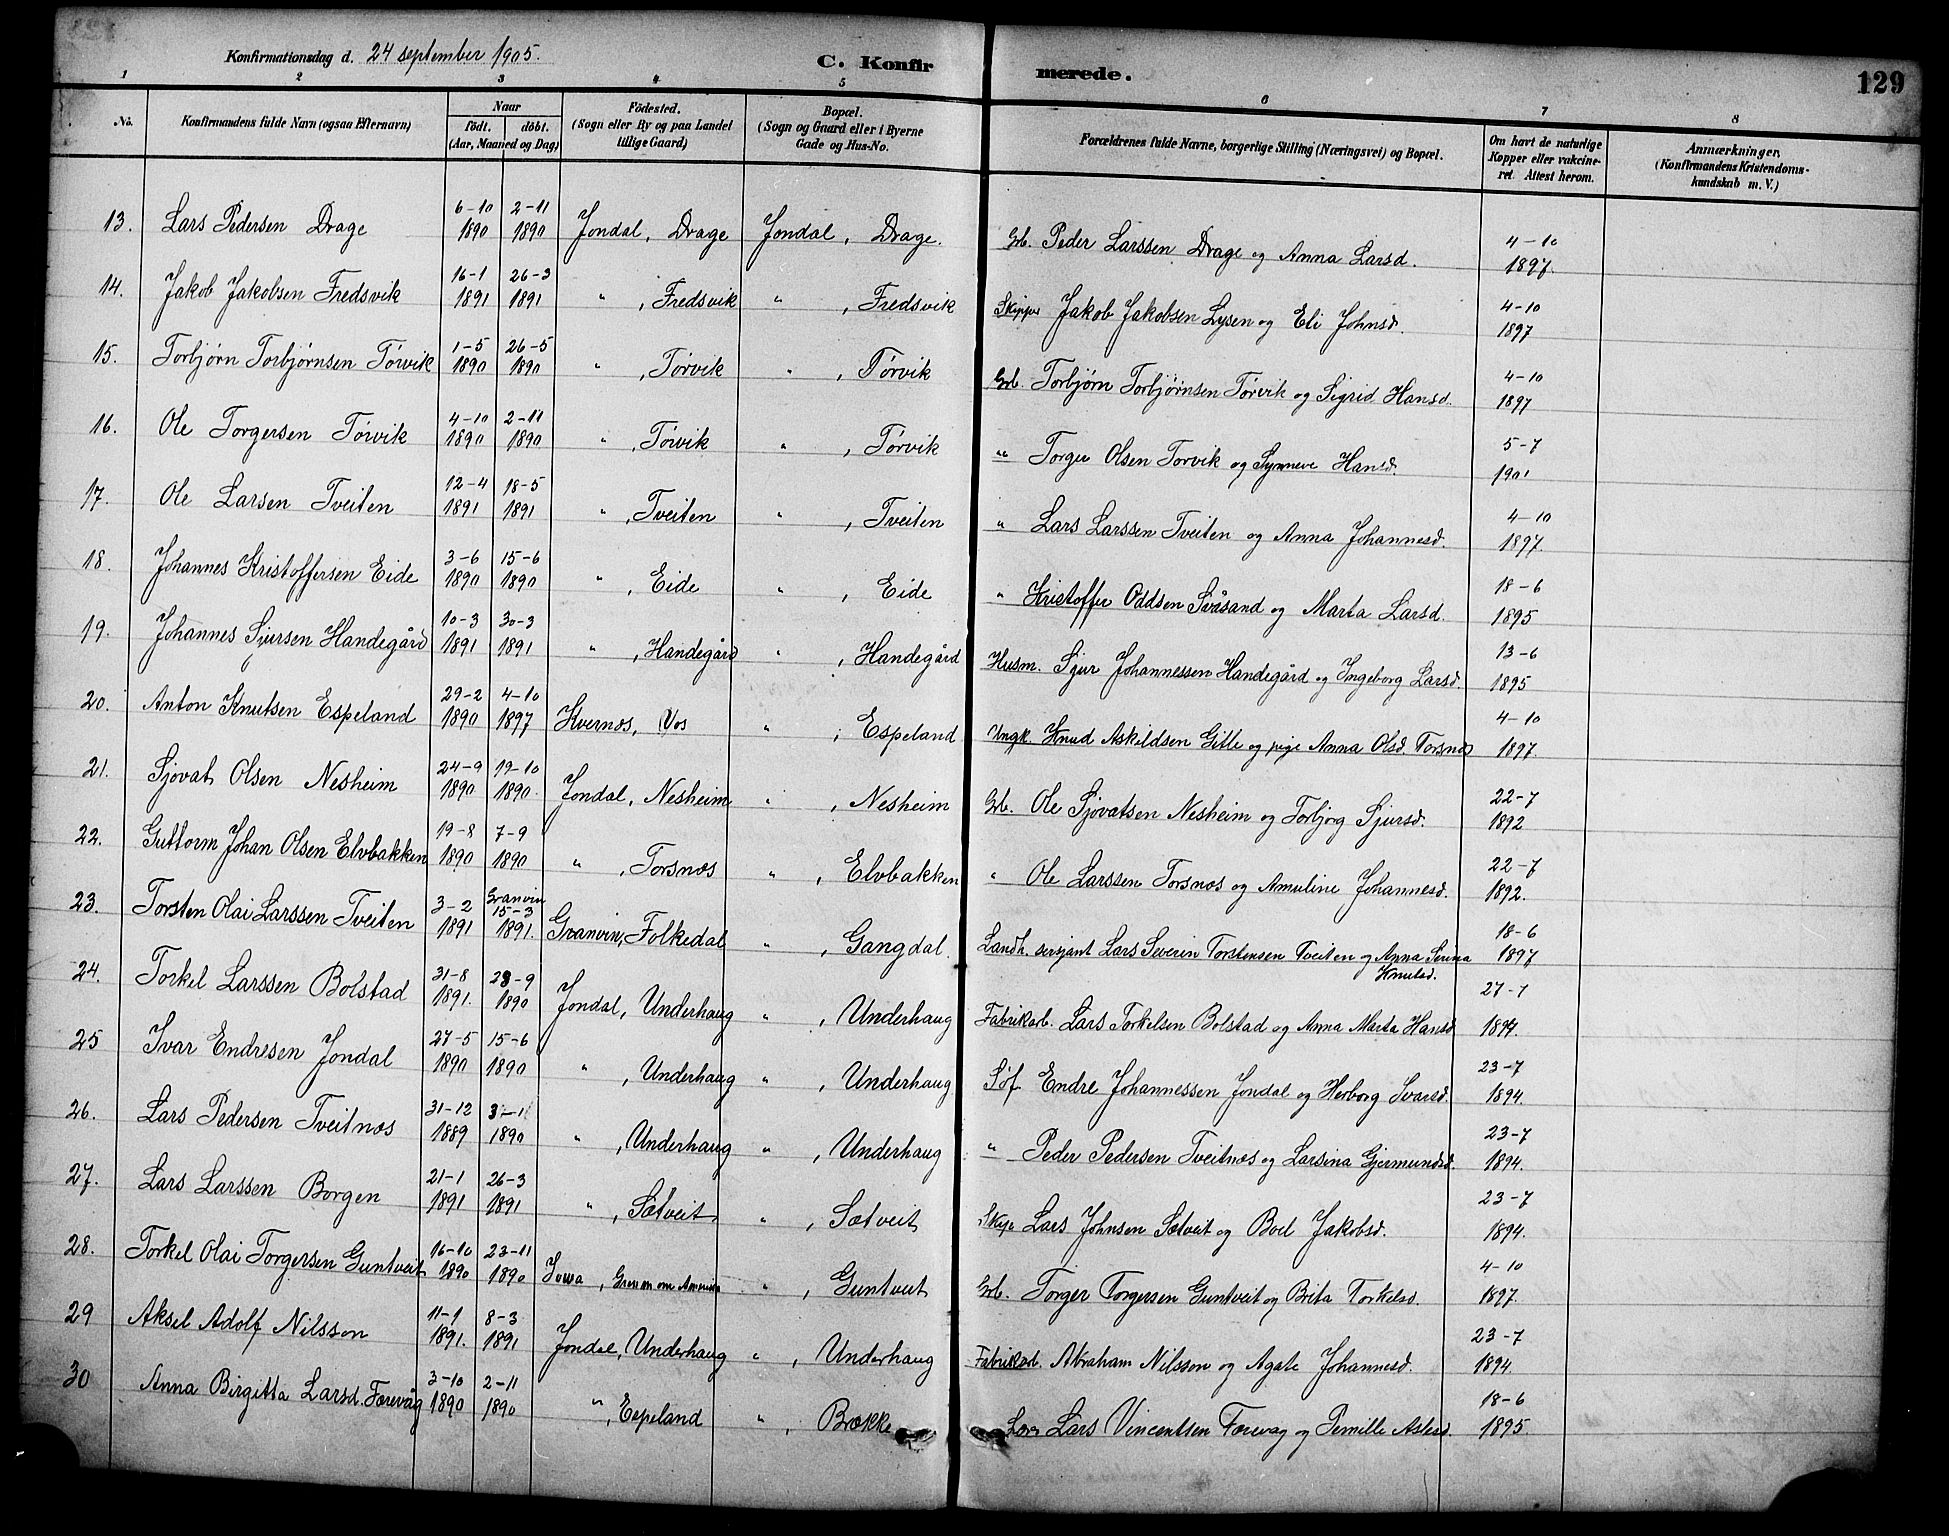 Konfirmationsdag d. 24 september 1905.
C. Konfirmerede.
129
1 2 3 4 5 6 7 8
No. Konfirmandens fulde Navn (ogsaa Efternavn) Naar født. døbt. (Aar, Maaned og Dag) Födested. (Sogn eller By og paa Landet tillige Gaard) Bopæl. (Sogn og Gaard eller i Byerne Gade og Hus-No. Forældrenes fulde Navne, borgerlige Stilling (Næringsvei) og Bopæl. Om havt de naturlige Kopper eller vakcineret. Attest herom. Anmærkninger. (Konfirmandens Kristendomskundskab m. V.)
13. Lars Pedersen Drage 6-10 1890 2-11 1890 Jondal, Drage Jondal, Drage. Gb. Peder Larssen Drage og Anna Larsd. 4-10 1897.
14. Jakob Jakobsen Fredsvik 16-1 1891 26-3 1891 " , Fredsvik " , Fredsvik Skipper Jakob Jakobsen Lysen og Eli Johnsd. 4-10 1897
15. Torbjørn Torbjørnsen Tørvik 1-5 1890 26-5 1890 " , Tørvik " , Tørvik Gb. Torbjørn Torbjørnsen Tørvik og Sigrid Hansd. 4-10 1897
16. Ole Torgersen Tørvik 4-10 1890 2-11 1890 " , Tørvik " , Tørvik " Torger Olsen Torvik og Synneve Hansd. 5-7 1901
17. Ole Larsen Tveiten 12-4 1891 18-5 1891 " , Tveiten " , Tveiten " Lars Larssen Tveiten og Anna Johannesd. 4-10 1897.
18. Johannes Kristoffersen Eide 3-6 1890 15-6 1890 " , Eide " , Eide " Kristoffer Oddsen Svåsand og Marta Larsd. 18-6 1895
19. Johannes Sjursen Handegård 10-3 1891 30-3 1891 " , Handegård " , Handegård Husm. Sjur Johannessen Handegård og Ingeborg Larsd. 13-6 1895
20. Anton Knutsen Espeland 29-2 1890 4-10 1897 Kvernæs, Vos " , Espeland Ungk. Knud Askildsen Gille og pige Anna Olsd. Torsnæs 4-10 1897.
21. Sjovat Olsen Nesheim 24-9 1890 19-10 1890. Jondal, Nesheim " , Nesheim Gb. Ole Sjovatsen Nesheim og Torbjorg Sjursd. 22-7 1892
22. Guttorm Johan Olsen Elvbakken 19-8 1890 7-9 1890 " , Torsnæs " , Elvbakken " Ole Larssen Torsnæs og Amuline Johannesd. 22-7 1892.
23. Torsten Olai Larssen Tveiten 3-2 1891 Granvin 15-3 1891. Granvin, Folkedal " , Gangdal. Landh. sersjant Lars Severin Torstensen Tveiten og Anna Serina Knutsd. 18-6 1897
24. Torkel Larssen Bolstad 31-8 1891. 28-9 1890 Jondal, Underhaug " , Underhaug Fabrikarb. Lars Torkelsen Bolstad og Anna Marta Hansd 27-7 1894.
25 Ivar Endresen Jondal 27-5 1890 15-6 1890 " , Underhaug " , Underhaug Søf Endre Johannessen Jondal og Herborg Ivarsd. 23-7 1894.
26. Lars Pedersen Tveitnæs 31-12 1889 1890 " , Underhaug " , Underhaug " Peder Pedersen Tveitnæs og Larsina Gjermundsd. 23-7 1894.
27. Lars Larssen Borgen 21-1 1891 26-3 1891 " , Sætveit " , Sætveit Skip. Lars Johnsen Sætveit og Boel Jakobsd. 23-7 1894.
28. Torkel Olai Torgersen Guntveit 16-10 1890 23-11 1890 Iowa, Amerika " , Guntveit Gb. Torger Torgersen Guntveit og Brita Torkelsd. 4-10 1897.
29 Aksel Adolf Nilsson 11-1 1891. 8-3 1891 Jondal, Underhaug " , Underhaug Fabrikarb. Abraham Nilsson og Agate Johannesd. 23-7 1894.
30 Anna Birgitta Larsd. Færevåg 3-10 1890 2-11 1890 " , Espeland " , Brække Lars Vincentsen Færevag og Pernille Aslesd. 18-6 1895.